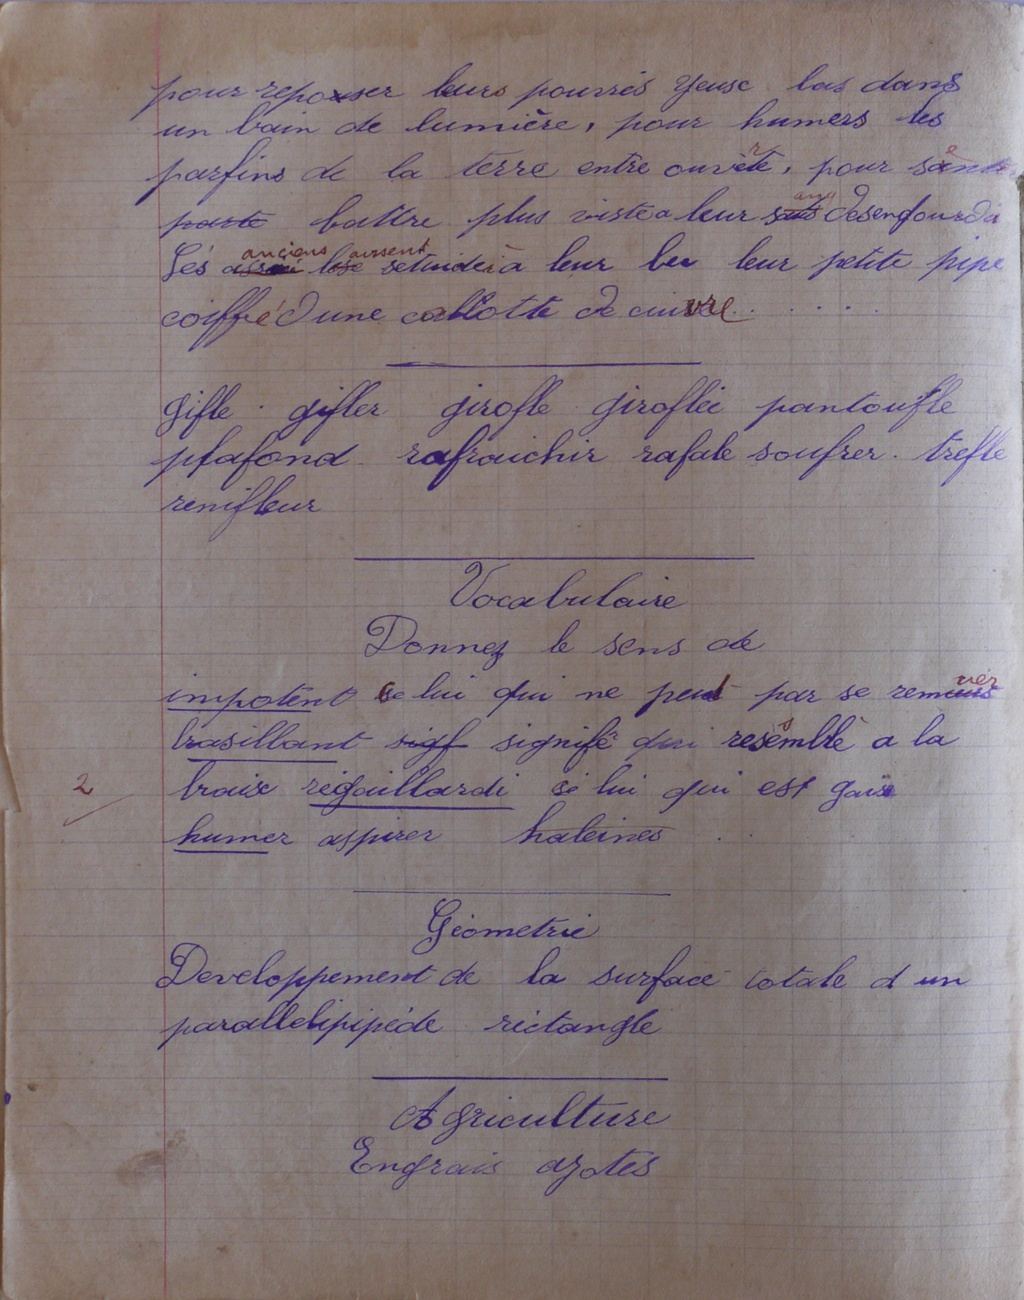 pour reposer leurs pouvrés yeuse las dans
un bain de lumière, pour humers les
parfins de la terre entre ouvète, pour
parte battre plus viste a leur sang desengourdi
Lés anciens aissent à leur bec leur petite pipe
coiffé d'une callotte de cuivre. . . . .
gifle . gifler girofle giroflée pantoufle
plafond . rafraichir rafale soufrer . trefle
renifleur
Vocabulaire
Donnez le sens de
impotent ce lui qui ne peut par se remuer
brasillant signifé qui ressemble a la
2 braise régaillardi ce lui qui est gais
humer aspirer haleines .
Géometrie
Developpement de la surface totale d un
parallelipipéde réctangle
Agriculture
Engrais azotés